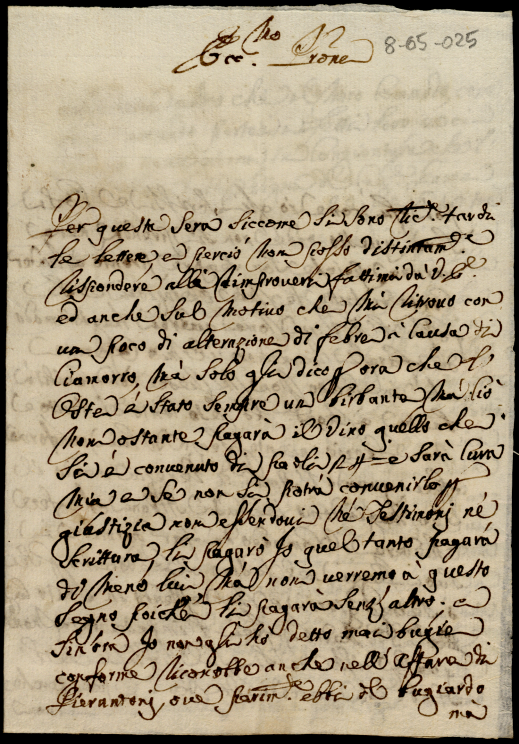 Ecc.mo Prone
8-05-025
Per questa sera siccome si sono ric.e tardi
le lettere e perciò non posso distintam.e
rispondere alli rimproveri fattimi da V.E.
ed anche sul motivo che mi ritrovo con
un poco di alterazione di febre à causa di
Ciamorro, mà solo gli dico p ora che l'
Oste è stato sempre un birbante mà ciò
non ostante pagarà il vino quello che
si è convenuto di paoli e sarà cura
mia e se non si potrà convenirlo p
giustizia non essendovi né Testimonj né
scrittura, li pagarò Io quel tanto pagarà
di meno lui, mà non verremo à questo
segno poiché li pagarà senz'altro, e
sin'ora Io non gli hò detto mai bugie
conforme ricorobbe anche nell'affare di
Pierantonj, ove parim.e ebbi del bugiardo
mà